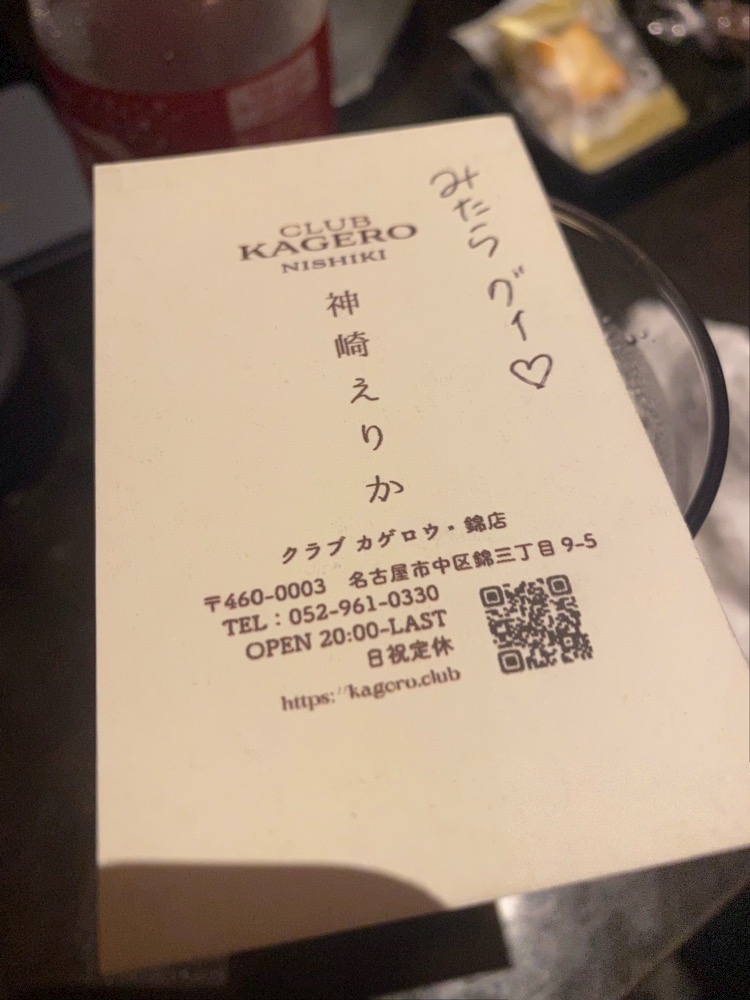 CLUB
KAGERO
NISHIKI
みたらグイ♡
神崎えりか
クラブ カゲロウ・錦店
〒460-0003 名古屋市中区錦三丁目9-5
TEL：052-961-0330
OPEN 20:00-LAST
日祝定休
https://kagero.club